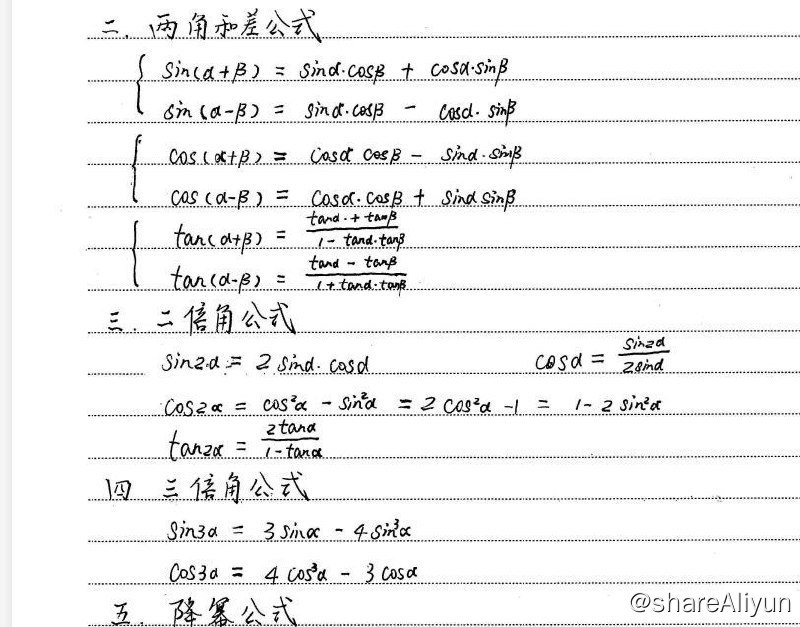 二. 两角和差公式
sin(α+β) = sinα·cosβ + cosα·sinβ
sin(α-β) = sinα·cosβ - cosα·sinβ
cos(α+β) = cosα cosβ - sinα·sinβ
cos(α-β) = cosα·cosβ + sinα sinβ
tan(α+β) = (tanα·+ tanβ)/(1 - tanα·tanβ)
tan(α-β) = (tanα - tanβ)/(1 + tanα·tanβ)
三. 二倍角公式
sin2α = 2 sinα·cosα cosα = sin2α/2sinα
cos2α = cos²α - sin²α = 2cos²α - 1 = 1 - 2 sin²α
tan2α = 2tanα/(1 - tanα)
四 三倍角公式
sin3α = 3 sinα - 4 sin³α
cos3α = 4 cos³α - 3 cosα
五. 降幂公式
@shareAliyun